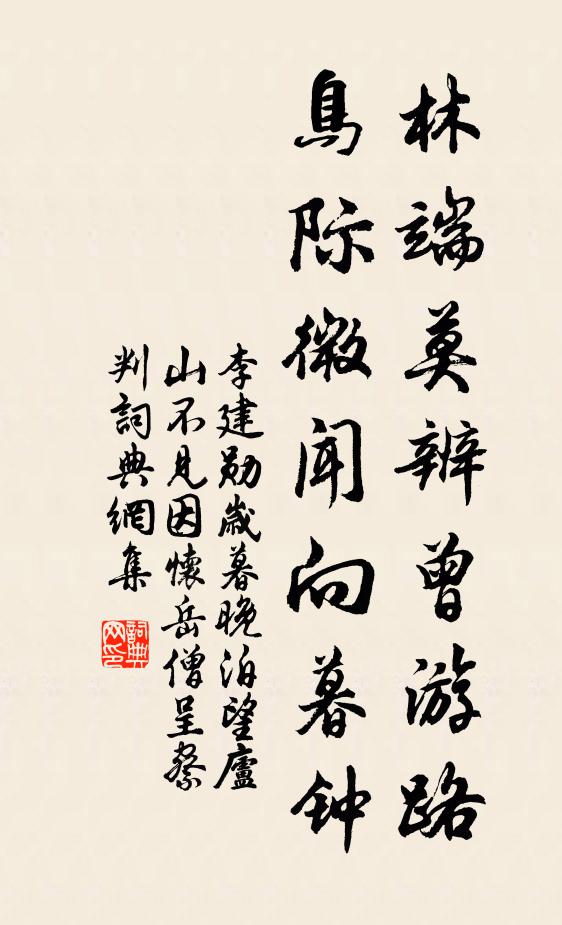 林端莫辨曾游路
鳥际微闻向暮钟
李建勛歲暮晚泊望廬
山不見因懷岳僧呈察
判詞典網集
詞典网印